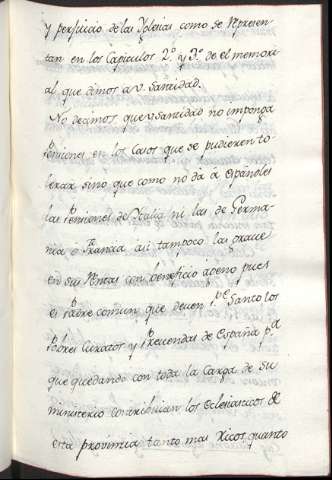 y perjuicio de las Iglesias como se represen-
tan en los Capitulos 2.º y 3.º de el memori-
al que dimos a V. Santidad.
No decimos que V Santidad no imponga
Pensiones en los Casos que se pudieren to-
lerar sino que como no da a españoles
las Pensiones de Italia ni las de Germa-
nia o Francia asi tampoco las grave
en sus Rentas con beneficio ageno pues
es Padre comun que deven P.e Santo los
Pobres Curatos y Prevendas de España p.a
que quedando con toda la Carga de su
ministerio contribuian los eclesiasticos de
esta provincia tanto mas Ricos quanto